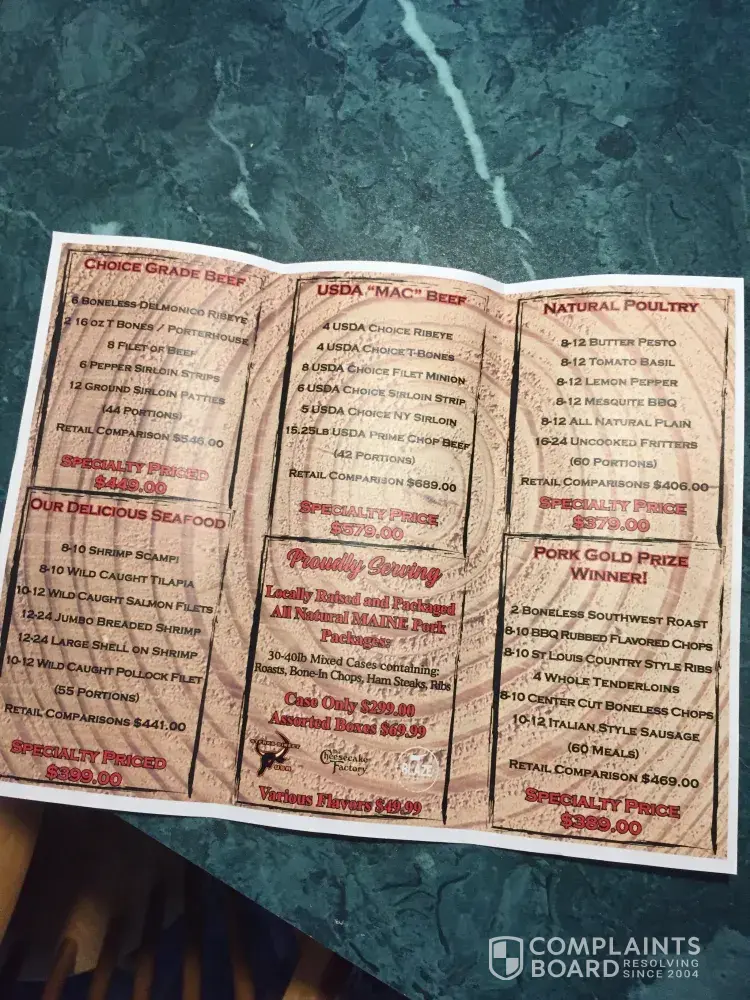 CHOICE GRADE BEEF
6 BONELESS DELMONICO RIBEYE
2 16 OZ T BONES / PORTERHOUSE
8 FILET OF BEEF
6 PEPPER SIRLOIN STRIPS
12 GROUND SIRLOIN PATTIES
(44 PORTIONS)
RETAIL COMPARISON $546.00
SPECIALTY PRICED
$449.00
USDA "MAC" BEEF
4 USDA CHOICE RIBEYE
4 USDA CHOICE T-BONES
8 USDA CHOICE FILET MINION
6 USDA CHOICE SIRLOIN STRIP
5 USDA CHOICE NY SIRLOIN
15.25LB USDA PRIME CHOP BEEF
(42 PORTIONS)
RETAIL COMPARISON $689.00
SPECIALTY PRICE
$579.00
NATURAL POULTRY
8-12 BUTTER PESTO
8-12 TOMATO BASIL
8-12 LEMON PEPPER
8-12 MESQUITE BBQ
8-12 ALL NATURAL PLAIN
16-24 UNCOOKED FRITTERS
(60 PORTIONS)
RETAIL COMPARISONS $406.00
SPECIALTY PRICE
$379.00
OUR DELICIOUS SEAFOOD
8-10 SHRIMP SCAMPI
8-10 WILD CAUGHT TILAPIA
10-12 WILD CAUGHT SALMON FILETS
12-24 JUMBO BREADED SHRIMP
12-24 LARGE SHELL ON SHRIMP
10-12 WILD CAUGHT POLLOCK FILET
(55 PORTIONS)
RETAIL COMPARISONS $441.00
SPECIALTY PRICED
$399.00
Proudly Serving
Locally Raised and Packaged
All Natural MAINE Pork
Packages:
30-40lb Mixed Cases containing:
Roasts, Bone-In Chops, Ham Steaks, Ribs
Case Only $299.00
Assorted Boxes $69.99
Cheesecake
Factory
BLAZE
Various Flavors $49.99
PORK GOLD PRIZE
WINNER!
2 BONELESS SOUTHWEST ROAST
8-10 BBQ RUBBED FLAVORED CHOPS
8-10 ST LOUIS COUNTRY STYLE RIBS
4 WHOLE TENDERLOINS
8-10 CENTER CUT BONELESS CHOPS
10-12 ITALIAN STYLE SAUSAGE
(60 MEALS)
RETAIL COMPARISON $469.00
SPECIALTY PRICE
$389.00
COMPLAINTS
BOARD RESOLVING SINCE 2004